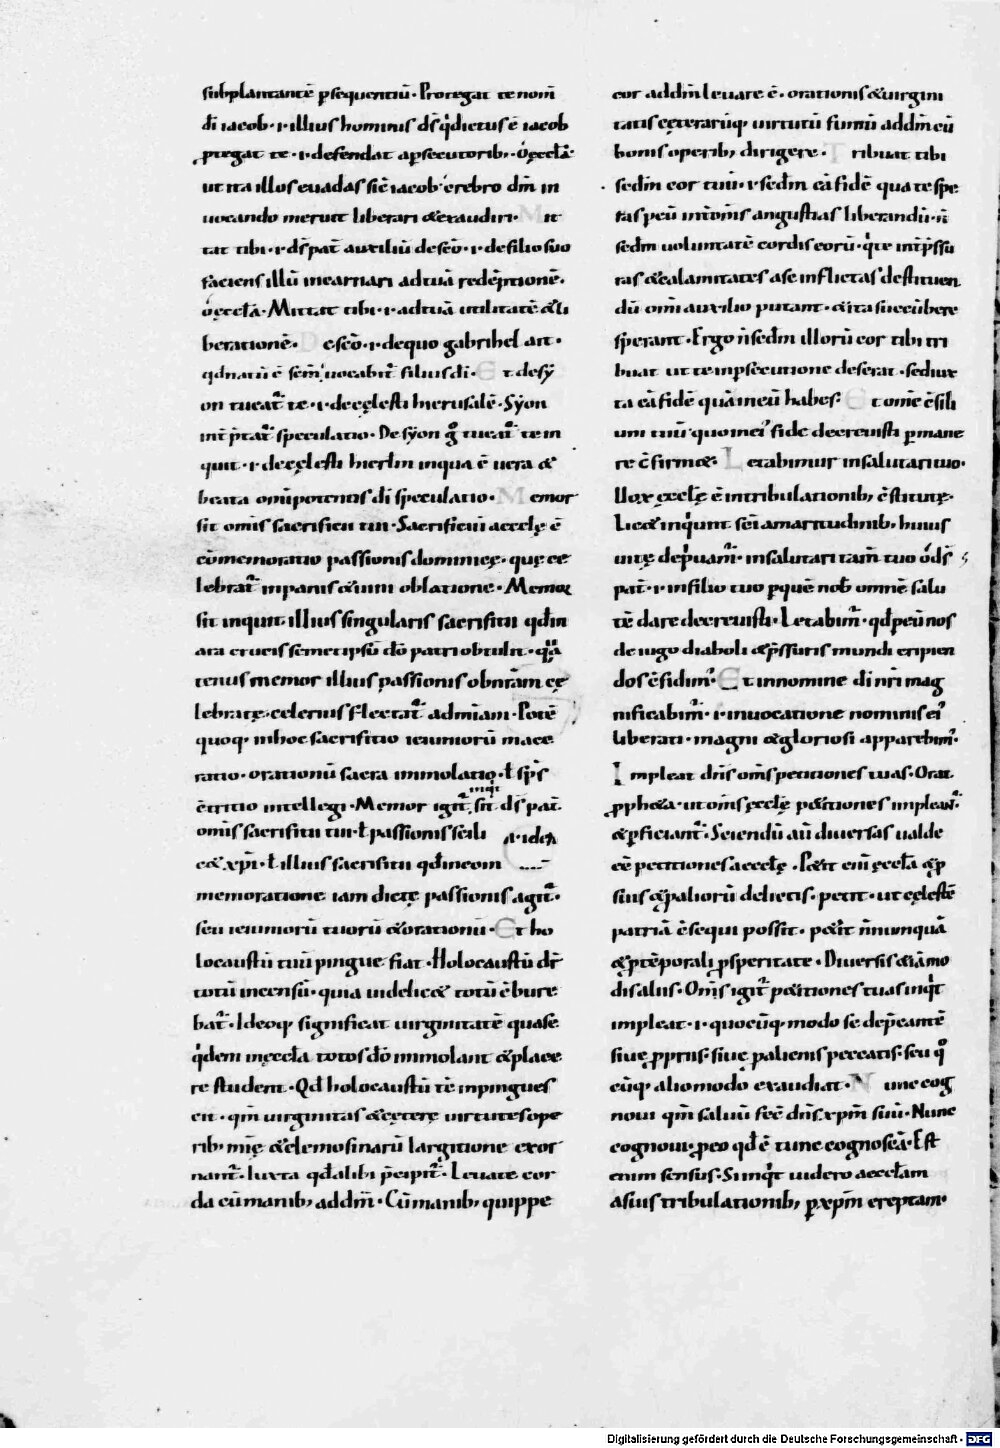 subplantantē ꝑsequentiū· Protegat te nom̄
dī iacob· ·i· illius hominis dꝰ q̇ dictus ē iacob
ꝓtegat te· ·i· defendat a ꝑsecutorib; o ęccl̄a·
ut ita illos euadas sic̄ iacob crebro dn̄m in
uocando meruit liberari & exaudiri· Mit
tat tibi· ·i· dꝰ pat̄ auxiliū de sc̄o· ·i· de filio suo
faciens illū incarnari ad tuā redēptionē·
o ęccl̄a· Mittat tibi· ·i· ad tuā utilitatē & li
berationē· De sc̄o· ·i· de quo gabrihel ait·
qd natū ē sc̄m uocabit̄ filius dī· Et de sy
on tueat̄ te· ·i· de cęlesti hierusalē· Syon
int̄p̄tat̄ speculatio· De syon g̊ tueat̄ te in
quit· ·i· de cęlesti hierl̄m in qua ē uera &
beata om̄ipotentis dī speculatio· Memor
sit om̄is sacrificii tui· Sacrificiū ęccl̄ę ē
cōmemoratio passionis dominicę· quę ce
lebrat̄ in panis & uini oblatione· Memor
sit inquit illius singularis sacrificii qd̄ in
ara crucis semetipsū dō patri obtulit· q̄
tenus memor illius passionis ob nr̄am ce
lebratę celerius flectat̄ ad mīam· Potē
quoq; in hoc sacrificio ieiuniorū mace
ratio· orationū sacra immolatio· ł sp̄s
c̄tritio intellegi· Memor igit̄ inqt sit dꝰ pat̄
om̄is sacrificii tui· ł passionis scili
c& xp̄i· ł illius sacrificii qd̄ in com
memoratione iam dictę passionis agit̄·
seu ieiuniorū tuorū & orationū· Et ho
locaustū tuū pingue fiat· Holocaustū dr̄
totū incensū· quia uidelic& totū c̄bure
bat̄· Ideoq; significat uirginitatē quasē
q̇dem in ęccl̄a totos dō immolant & place
re student· Qd̄ holocaustū tc̄ inpingues
cit· qm̄ uirginitas & cęterę uirtutes ope
rib; mīę & elemosinarū largitione exor
nant̄· Iuxta qd̄ alibi p̄cipit̄· Leuate cor
da cū manib; ad dn̄m· Cū manib; quippe
cor ad dn̄m leuare ē· orationis & uirgini
tatis cęterarūq; uirtutū sumū ad dm̄ cū
bonis operib; dirigere· Tribuat tibi
sedm̄ cor tuū· ·i· sedm̄ eā fidē qua te spe
ras ꝑ eū int̄ om̄s angustias liberandū· n̄
sedm̄ uoluntatē cordis eorū· q̇ te int̄ p̄ssu
ras & calamitates a se inflictas destituen
dū om̄i auxilio putant· & ita succūbere
sperant· Ergo n̄ sedm̄ illorū cor tibi tri
buat ut te in ꝑsecutione deserat· sed iux
ta eā fidē quā in eū habes· Et om̄e c̄sili
um tuū quo in ei fide decreuisti ꝑmane
re c̄firm&· Letabimur in salutari tuo·
Uox ęccl̄ę ē in tribulationib; c̄stitutę·
Lic& inq̇unt sc̄i amaritudinib; huius
uitę dep̄uam̄· in salutari tam̄ tuo o dꝰ
pat̄· ·i· in filio tuo ꝑ quē nob̄ omnē salu
tē dare decreuisti· Letabim̄· qd̄ ꝑ eū nos
de iugo diaboli & p̄ssuris mundi eripien
dos c̄fidim̄· Et in nomine dī nr̄i mag
nificabim̄· ·i· inuocatione nominis ei
liberati· magni & gloriosi apparebim̄·
Impleat dn̄s om̄s petitiones tuas· Orat
ꝓph&a· ut om̄s ęccl̄ę p&itiones implean̄t
& ꝑficiant̄· Sciendū aū diuersas ualde
ēē petitiones ęccl̄ę· P&it eni ęccl̄a & ꝓ
suis & ꝓ aliorū delictis· petit· ut cęlestē
patriā c̄sequi possit· p&it n̄nunquā
& ꝓ tēporali ꝓsperitate· Diuersis & iā mo
dis alus· Om̄s igit̄ p&itiones tuas inq̇t
impleat· ·i· quocūq; modo se dep̄cantē
siue ꝓ ꝓprus· siue ꝓ alienis peccatis· seu q̊
cūq; alio modo exaudiat· Nunc cog
noui qm̄ saluū fec̄ dn̄s xp̄m suū· Nunc
cognoui· ꝓ eo qd̄ ē tunc cognoscā· Est
enim sensus· Si inq̇t uidero ęccl̄am
a suis tribulationib; ꝑ xp̄m ereptam·
Digitalisierung gefördert durch die Deutsche Forschungsgemeinschaft - DFG